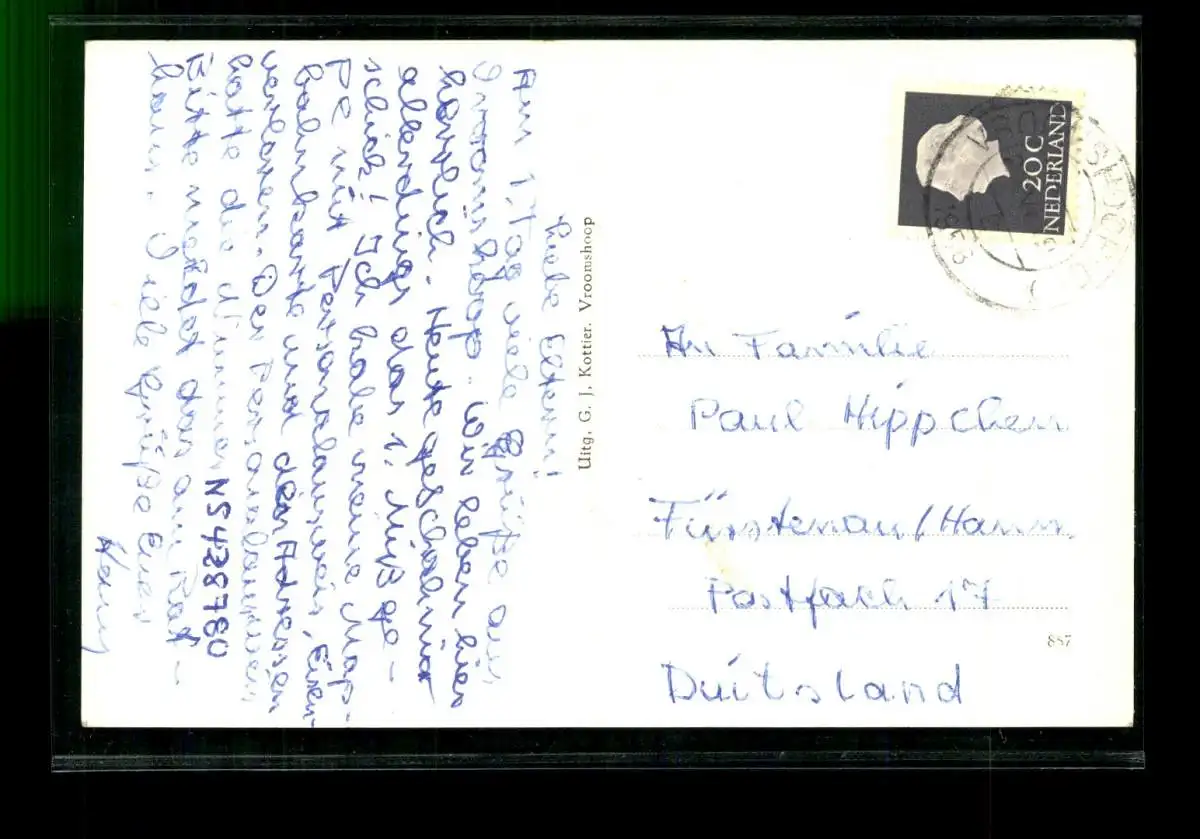 Liebe Eltern!
Am 1. Tag viele Grüße aus
Vroomshoop. Wir leben hier
herrlich. Heute geschah mir
allerdings das 1. Mißge-
schick! Ich habe meine Map-
pe mit Personalausweis, Eisen-
bahnkarte und den Adressen
verloren. Der Personalausweis
hatte die Nummer N5428780
Bitte meldet das am Rat-
haus. Viele Grüße Euer
Uitg. G. J. Kottier. Vroomshoop
20 C
NEDERLAND
An Familie
Paul Hippchen
Fürstenau/Hann.
Postfach 17
887
Duitsland